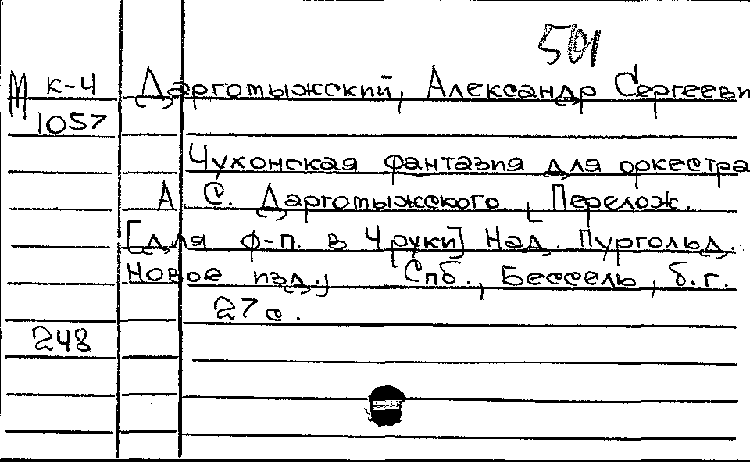 501
М к-4 Даргомыжский, Александр Сергееви
1057
Чухонская фантазия для оркестра
А С. Даргомыжского, Перелож.
[для ф-п. в 4 руки] Над. Пургольд.
Новое изд., Спб., Бессель, б.г.
27 с.
248